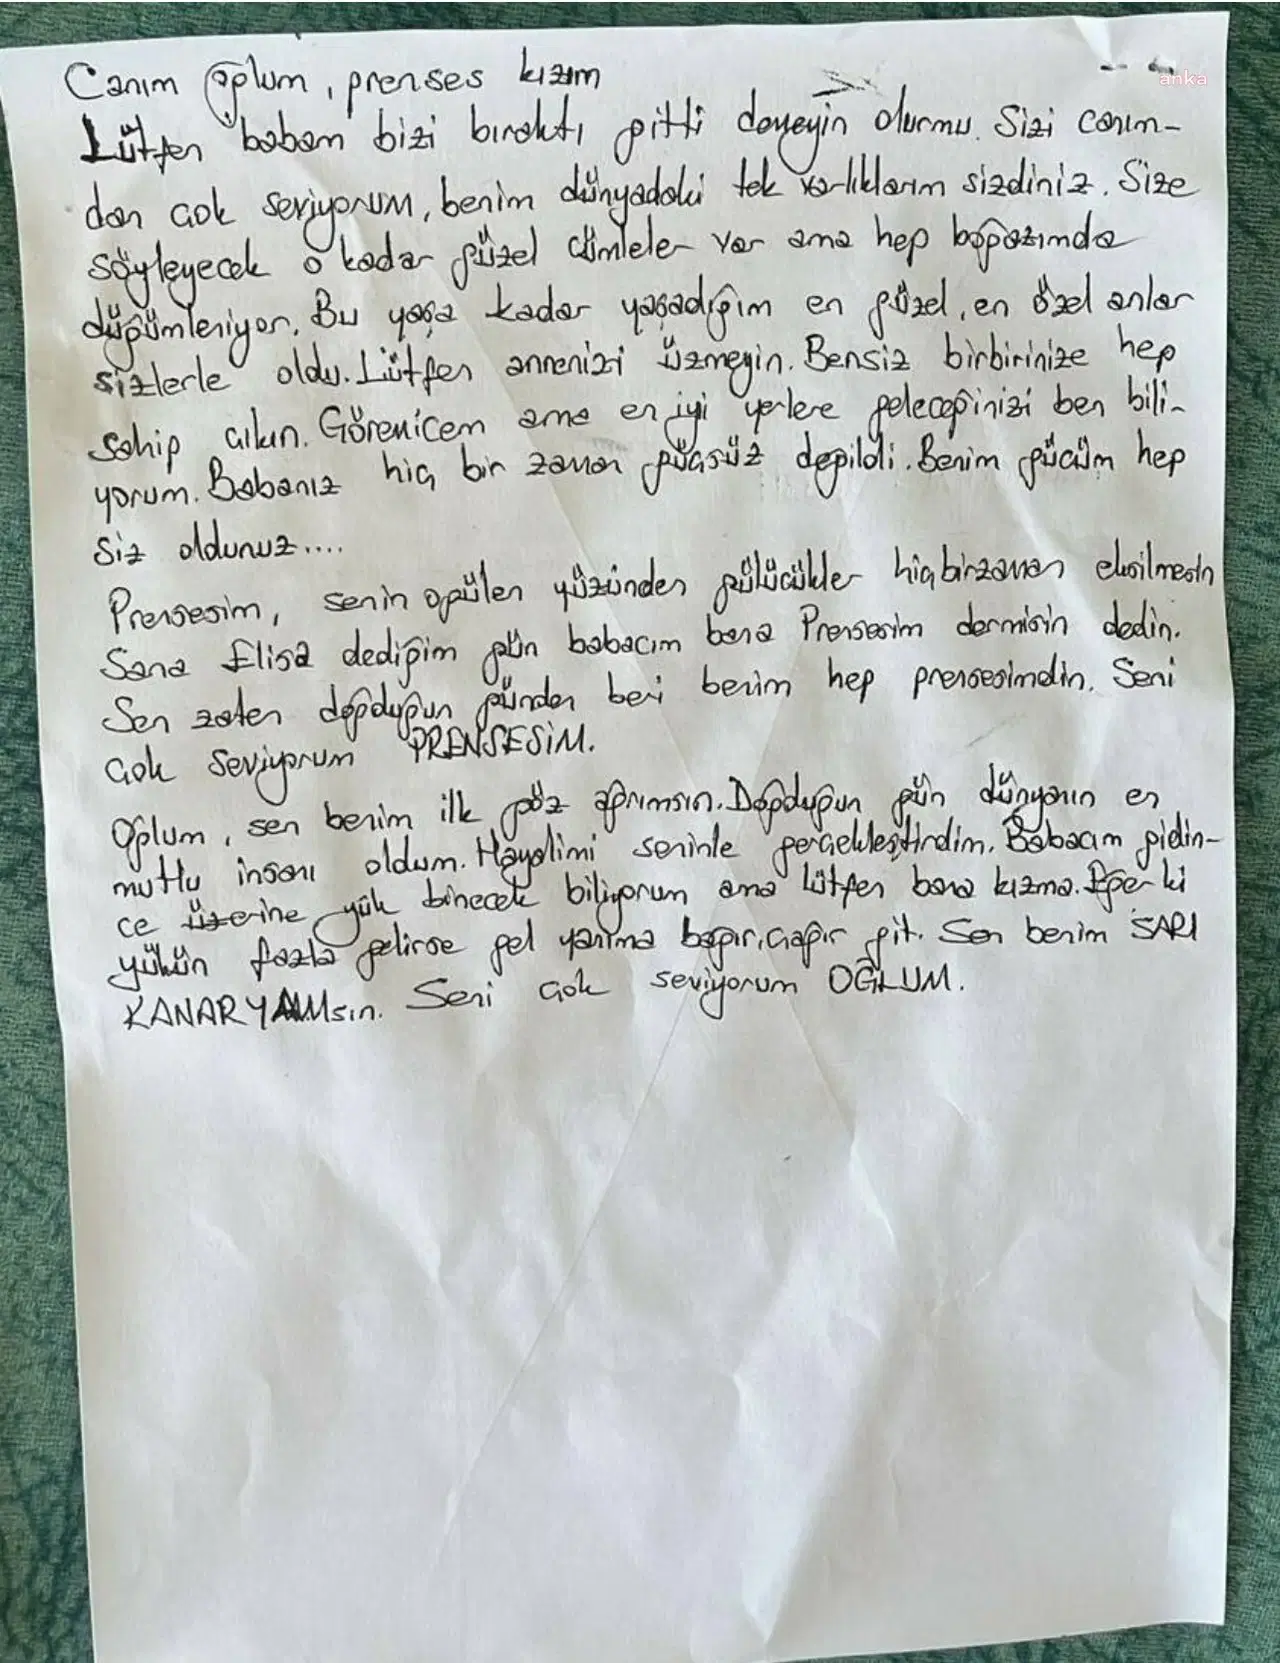 anka
Canım oğlum, prenses kızım
Lütfen babam bizi bıraktı gitti demeyin olurmu. Sizi canım-
dan çok seviyorum, benim dünyadaki tek varlıklarım sizdiniz. Size
söyleyecek o kadar güzel cümleler var ama hep boğazımda
düğümleniyor. Bu yaşa kadar yaşadığım en güzel, en özel anlar
sizlerle oldu. Lütfen annenizi üzmeyin. Bensiz birbirinize hep
sahip çıkın. Göremicem ama en iyi yerlere geleceğinizi ben bili-
yorum. Babanız hiç bir zaman güçsüz değildi. Benim gücüm hep
siz oldunuz....
Prensesim, senin o gülen yüzünden gülücükler hiçbirzaman eksilmesin
Sana Elisa dediğim gün babacım bana Prensesim dermisin dedin.
Sen zaten doğduğun günden beri benim hep prensesimdin. Seni
çok seviyorum PRENSESİM.
Oğlum, sen benim ilk göz ağrımsın. Doğduğun gün dünyanın en
mutlu insanı oldum. Hayalimi seninle gerçekleştirdim. Babacım gidin-
ce üzerine yük binecek biliyorum ama lütfen bana kızma. Eğer ki
yükün fazla gelirse gel yanıma bağır, çağır git. Sen benim SARI
KANARYAMsın. Seni çok seviyorum OĞLUM.